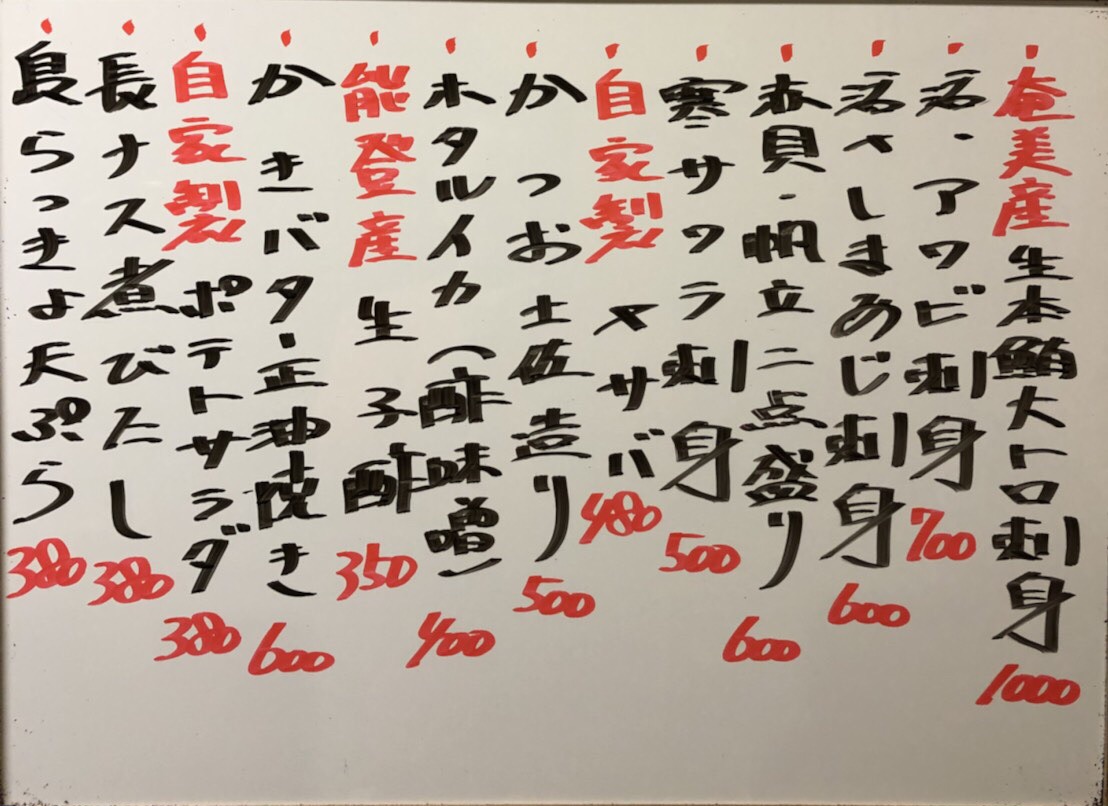 ・奄美産 生本鮪大トロ刺身 1000
・活・アワビ刺身 700
・活〆しまあじ刺身 600
・赤貝・帆立二点盛り 600
・寒サワラ刺身 500
・自家製 〆サバ 480
・かつお土佐造り 500
・ホタルイカ(酢味噌) 400
・能登産 生子酢 350
・かきバター正油焼き 600
・自家製 ポテトサラダ 380
・長ナス煮びたし 380
・島らっきょ天ぷら 380